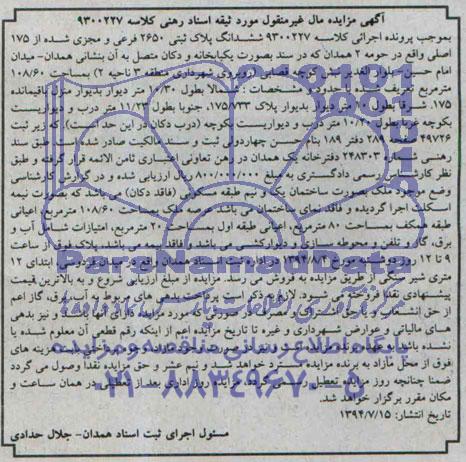 آگهی مزایده مال غیرمنقول مورد ثیقه اسناد رهنی کلاسه ۹۳۰۰۲۲۷
بموجب پرونده اجرائی کلاسه ۹۳۰۰۲۲۷ ششدانگ پلاک ثبتی ۲۶۵۰ فرعی و مجزی شده از ۱۷۵
اصلی واقع در حومه ۲ همدان که در سند بصورت یکبابخانه و دکان متصل به آن بنشانی همدان- میدان
امام حسین- بلوار الغدیر نبش کوچه قصابی (روبروی شهرداری منطقه ۳ ناحیه ۲) بمساحت ۱۰۸/۶۰
مترمربع تعریف شده با حدود و مشخصات: شمالا بطول ۱۰/۳۰ متر دیوار بدیوار منزل باقیمانده
۱۷۵، شرقا بطول متر دیوار بدیوار پلاک ۱۷۵/۷۳۳، جنوبا بطول ۱۱/۲۳ متر درب و دیواریست
بکوچه غربا بطول ۱۰/۲۰ متر درب و دیواریست بکوچه (درب دکان در این حد است). که زیر ثبت
۴۹۷۲۶ صفحه ۲۸۹ دفتر ۱۸۹ بنام حسن چهاردولی ثبت و سند مالکیت صادر شده است. طبق سند
رهنی شماره ۲۴۸۳۰۳ دفترخانه یک همدان در رهن تعاونی اعتباری ثامن الائمه قرار گرفته و طبق
نظر کارشناس رسمی دادگستری به مبلغ ریال ارزیابی شده و در گزارش کارشناسی
وضع موجود ملک بصورت ساختمان یک و نیم طبقه مسکونی (فاقد دکان) می‌باشد که بصورت نیمه
اسکلت اجرا گردیده و فاقد نمای ساختمان می باشد. عرصه ملک بمساحت ۱۰۸/۶۰ مترمربع، اعیانی
طبقه همکف بمساحت ۸۰ مترمربع، اعیانی طبقه اول بمساحت ۲۰ مترمربع، امتیازات شامل آب و
برق، گاز و تلفن و محوطه سازی و دیوارکشی می باشد و فاقد بیمه می باشد. پلاک فوق از ساعت
۹ تا ۱۲ روز دوشنبه مورخ ۱۳۹۴/۸/۴ در اداره ثبت اسناد همدان واقع در میدان فردوسی، ابتدای ۱۲
متری شیر سنگی از طریق مزایده به فروش می رسد. مزایده از مبلغ ارزیابی شروع و به بالاترین قیمت
پیشنهادی نقدا فروخته می شود. لازم به ذکر است پرداخت بدهی های مربوط به آب، برق، گاز اعم
از حق انشعاب و یا حق اشتراک و مصرف در صورتیکه مورد مزایده دارای آنها باشد و نیز بدهی
های مالیاتی و عوارض شهرداری و غیره تا تاریخ مزایده اعم از اینکه رقم قطعی آن معلوم شده یا
نشده باشد به عهده برنده مزایده است و نیز در صورت وجود مازاد وجوه پرداختی بابت هزینه های
فوق از محل مازاد به برنده مزایده مسترد خواهد شد و نیم عشر و حق مزایده نقدا وصول می گردد
ضمنا چنانچه روز مزایده تعطیل رسمی گردد، مزایده روز اداری بعد از تعطیلی در همان ساعت و
مکان مقرر برگزار خواهد شد.
تاریخ انتشار: ۱۳۹۴/۷/۱۵
مسئول اجرای ثبت اسناد همدان- جلال حدادی
ParsNamadData
پایگاه اطلاع رسانی مناقصه و مزایده
۰۲۱-۸۸۳۴۹۶۷۰-۵